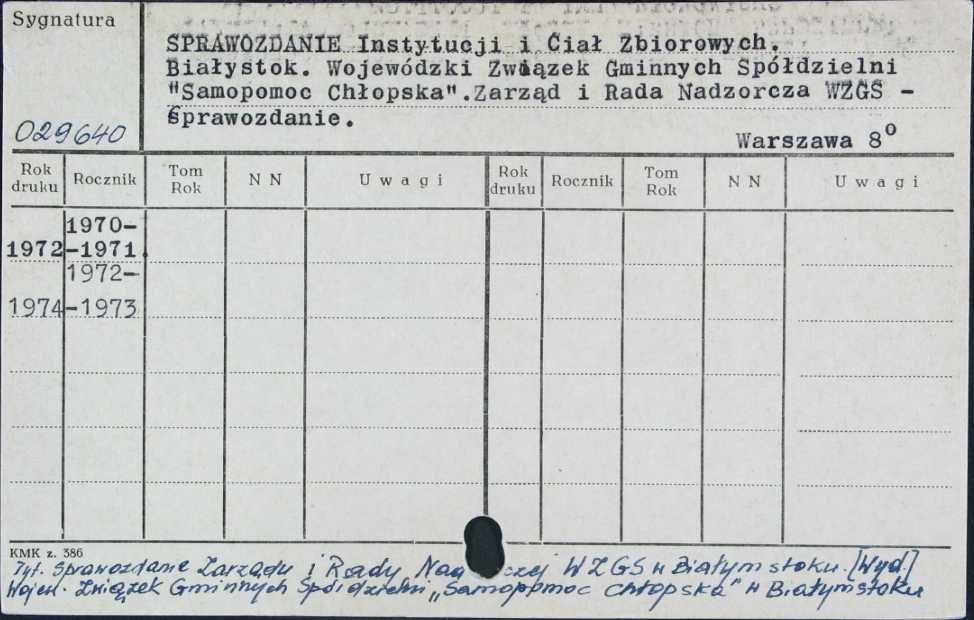 Sygnatura
SPRAWOZDANIE Instytucji i Ciał Zbiorowych.
Białystok. Wojewódzki Związek Gminnych Spółdzielni
"Samopomoc Chłopska".Zarząd i Rada Nadzorcza WZGS -
Sprawozdanie.
029640
Warszawa 8⁰
Rok druku Rocznik Tom Rok N N Uwagi Rok druku Rocznik Tom Rok N N Uwagi
1970-
1972 -1971.
1972-
1974 -1973
KMK z. 386
Tyt. Sprawozdanie Zarządu i Rady Nad czej WZGS w Białymstoku. [Wyd.]
Wojew. Związek Gminnych Spółdzielni „Samopomoc Chłopska" w Białymstoku